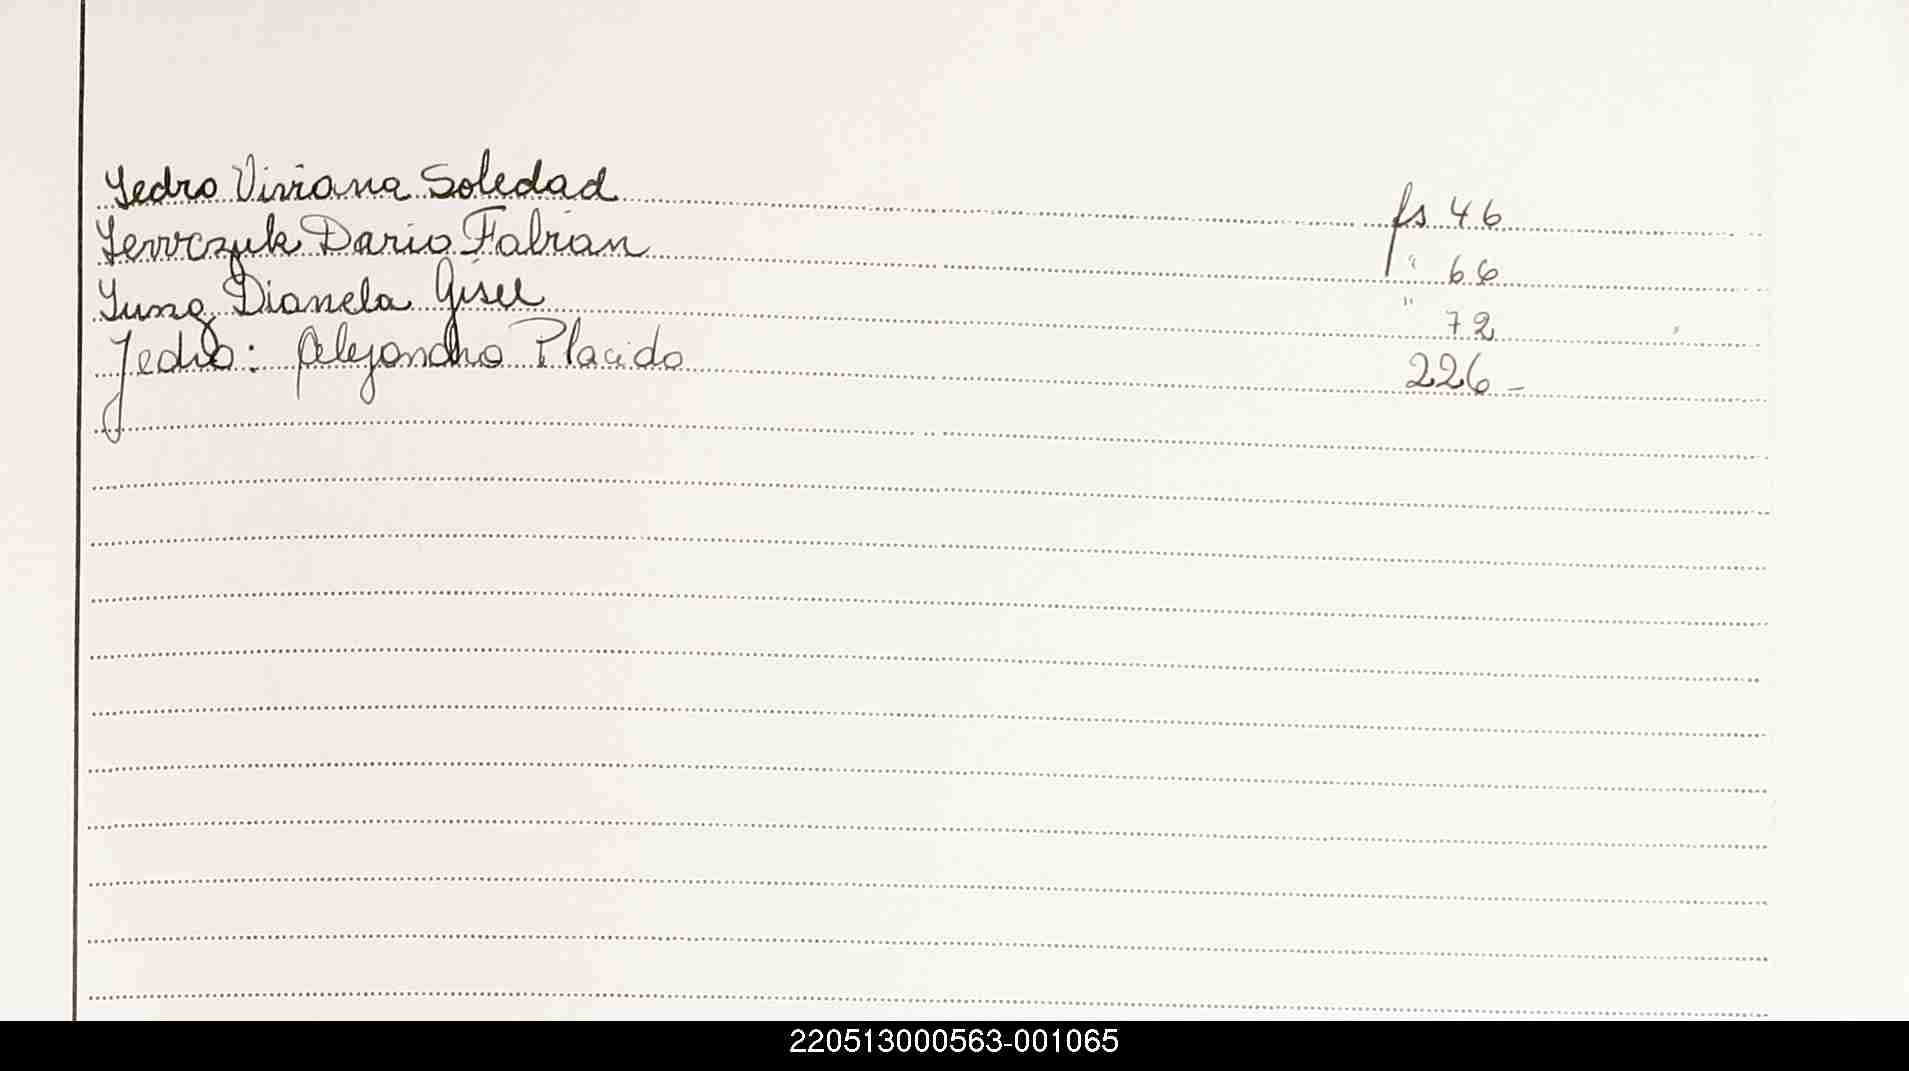 Yedro Viviana Soledad fs 46
Yewczuk Dario Fabian " 66
Yung Dianela Gisel " 72
Yedro: Alejandro Placido 226-
220513000563-001065